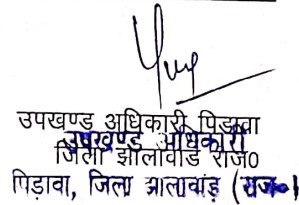 उपखण्ड अधिकारी पिडावा
उपखण्ड अधिकारी
जिला झालावाड राज०
पिड़ावा, जिला झालावाड़ (राज०)